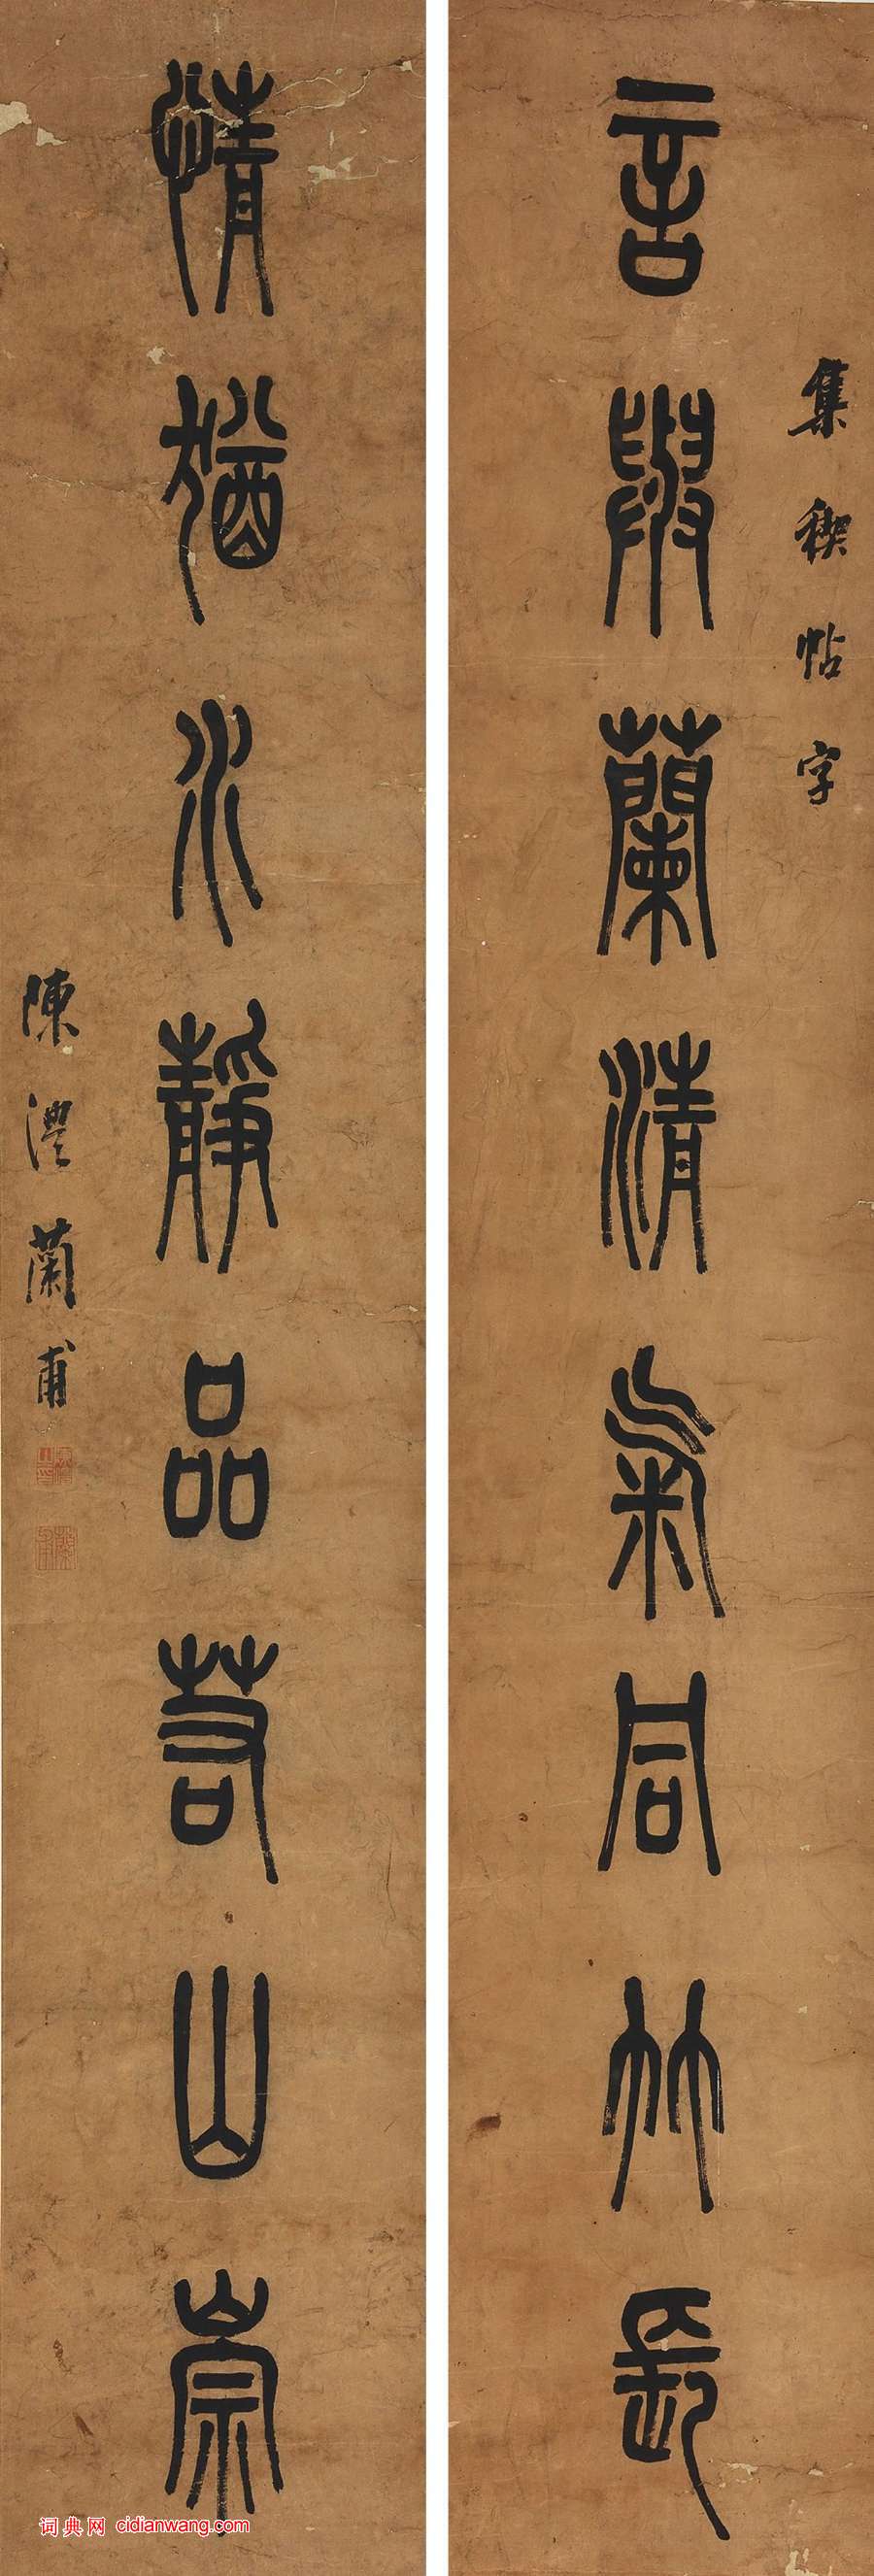 集禊帖字
言與蘭清氣同竹長
情猶水靜品若山崇
陳澧蘭甫
蘭甫
词典网 cidianwang.com